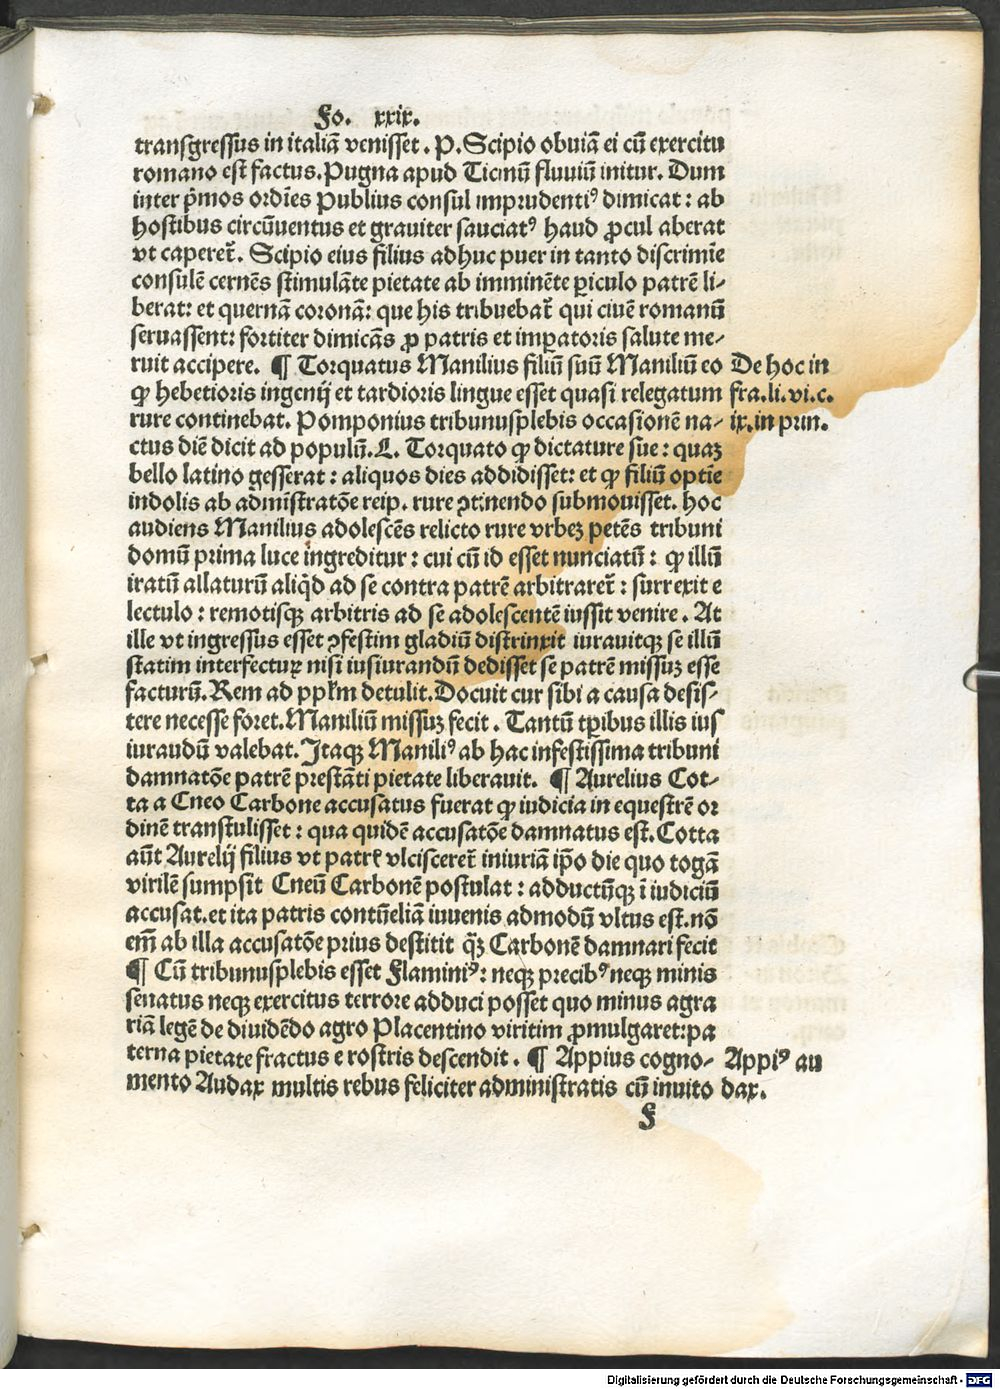 Fo. xxix.
transgressus in italiā venisset. P. Scipio obuiā ei cū exercitu
romano est factus. Pugna apud Ticinū fluuiū initur. Dum
inter p̄mos ordīes Publius consul imprudentiꝰ dimicat: ab
hostibus circūuentus et grauiter sauciatꝰ haud ꝓcul aberat
vt caperet᷑. Scipio eius filius adhuc puer in tanto discrimīe
consulē cernēs stimulāte pietate ab imminēte ꝑiculo patrē li-
berat: et quernā coronā: que his tribuebat᷑ qui ciuē romanū
seruassent: fortiter dimicās ꝓ patris et imꝑatoris salute me-
ruit accipere. ¶ Torquatus Manilius filiū suū Maniliū eo
ꝙ hebetioris ingenij et tardioris lingue esset quasi relegatum
rure continebat. Pomponius tribunusplebis occasionē na-
ctus diē dicit ad populū. L. Torquato ꝙ dictature sue: quaꝫ
bello latino gesserat: aliquos dies addidisset: et ꝙ filiū optīe
indolis ab admīstratōe reip. rure ꝯtinendo submouisset. hoc
audiens Manilius adolescēs relicto rure vrbeꝫ petēs tribuni
domū prima luce ingreditur: cui cū id esset nunciatū: ꝙ illū
iratū allaturū aliq̇d ad se contra patrē arbitraret᷑: surrexit e
lectulo: remotisqꝫ arbitris ad se adolescentē iussit venire. At
ille vt ingressus esset ꝯfestim gladiū distrinxit iurauitqꝫ se illū
statim interfecturꝫ nisi iusiurandū dedisset se patrē missuꝫ esse
facturū. Rem ad ppl̄m detulit. Docuit cur sibi a causa desis-
tere necesse foret. Maniliū missuꝫ fecit. Tantū tꝑibus illis ius
iuraudū valebat. Itaqꝫ Maniliꝰ ab hac infestissima tribuni
damnatōe patrē prestāti pietate liberauit. ¶ Aurelius Cot-
ta a Cneo Carbone accusatus fuerat ꝙ iudicia in equestrē or
dinē transtulisset: qua quidē accusatōe damnatus est. Cotta
aūt Aurelij filius vt patrē vlcisceret᷑ iniuriā ip̄o die quo togā
virilē sumpsit Cneū Carbonē postulat: adductūqꝫ ī iudiciū
accusat. et ita patris contūeliā iuuenis admodū vltus est. nō
em̄ ab illa accusatōe prius destitit q̄ꝫ Carbonē damnari fecit
¶ Cū tribunusplebis esset Flaminiꝰ: neqꝫ precibꝰ neqꝫ minis
senatus neqꝫ exercitus terrore adduci posset quo minus agra
riā legē de diuidēdo agro Placentino viritim ꝓmulgaret: pa
terna pietate fractus e rostris descendit. ¶ Appius cogno-
mento Audax multis rebus feliciter administratis cū inuito
F
De hoc in
fra. li. vi. c.
ix. in prin.
Appiꝰ au
dax.
Digitalisierung gefördert durch die Deutsche Forschungsgemeinschaft - DFG